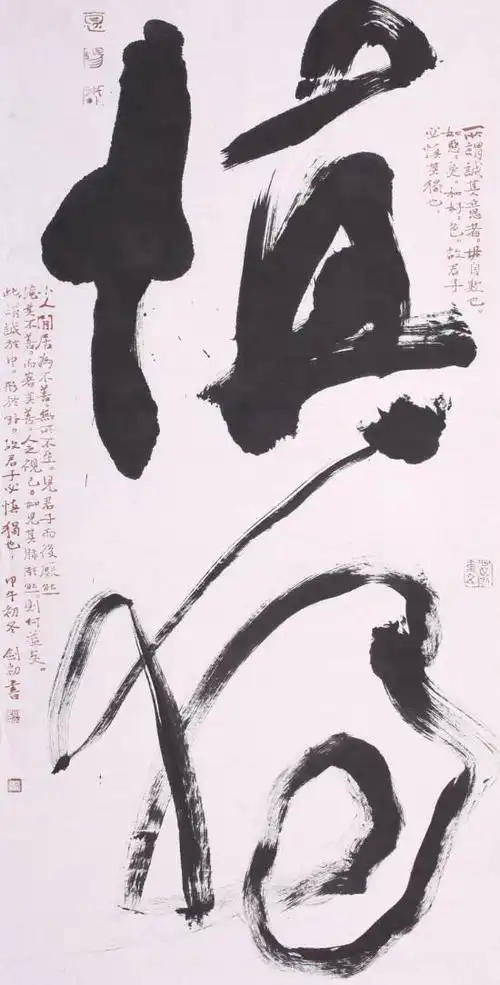 慎独
所謂誠其意者。毋自欺也。
如惡。臭如好。色。故君子
必慎其獨也。
小人閒居為不善無所不至。見君子而後厭然
掩其不善。而著其善。人之視己。如見其肺肝然則何益矣。
此謂誠於中。形於外。故君子必慎獨也。 甲午初冬 書